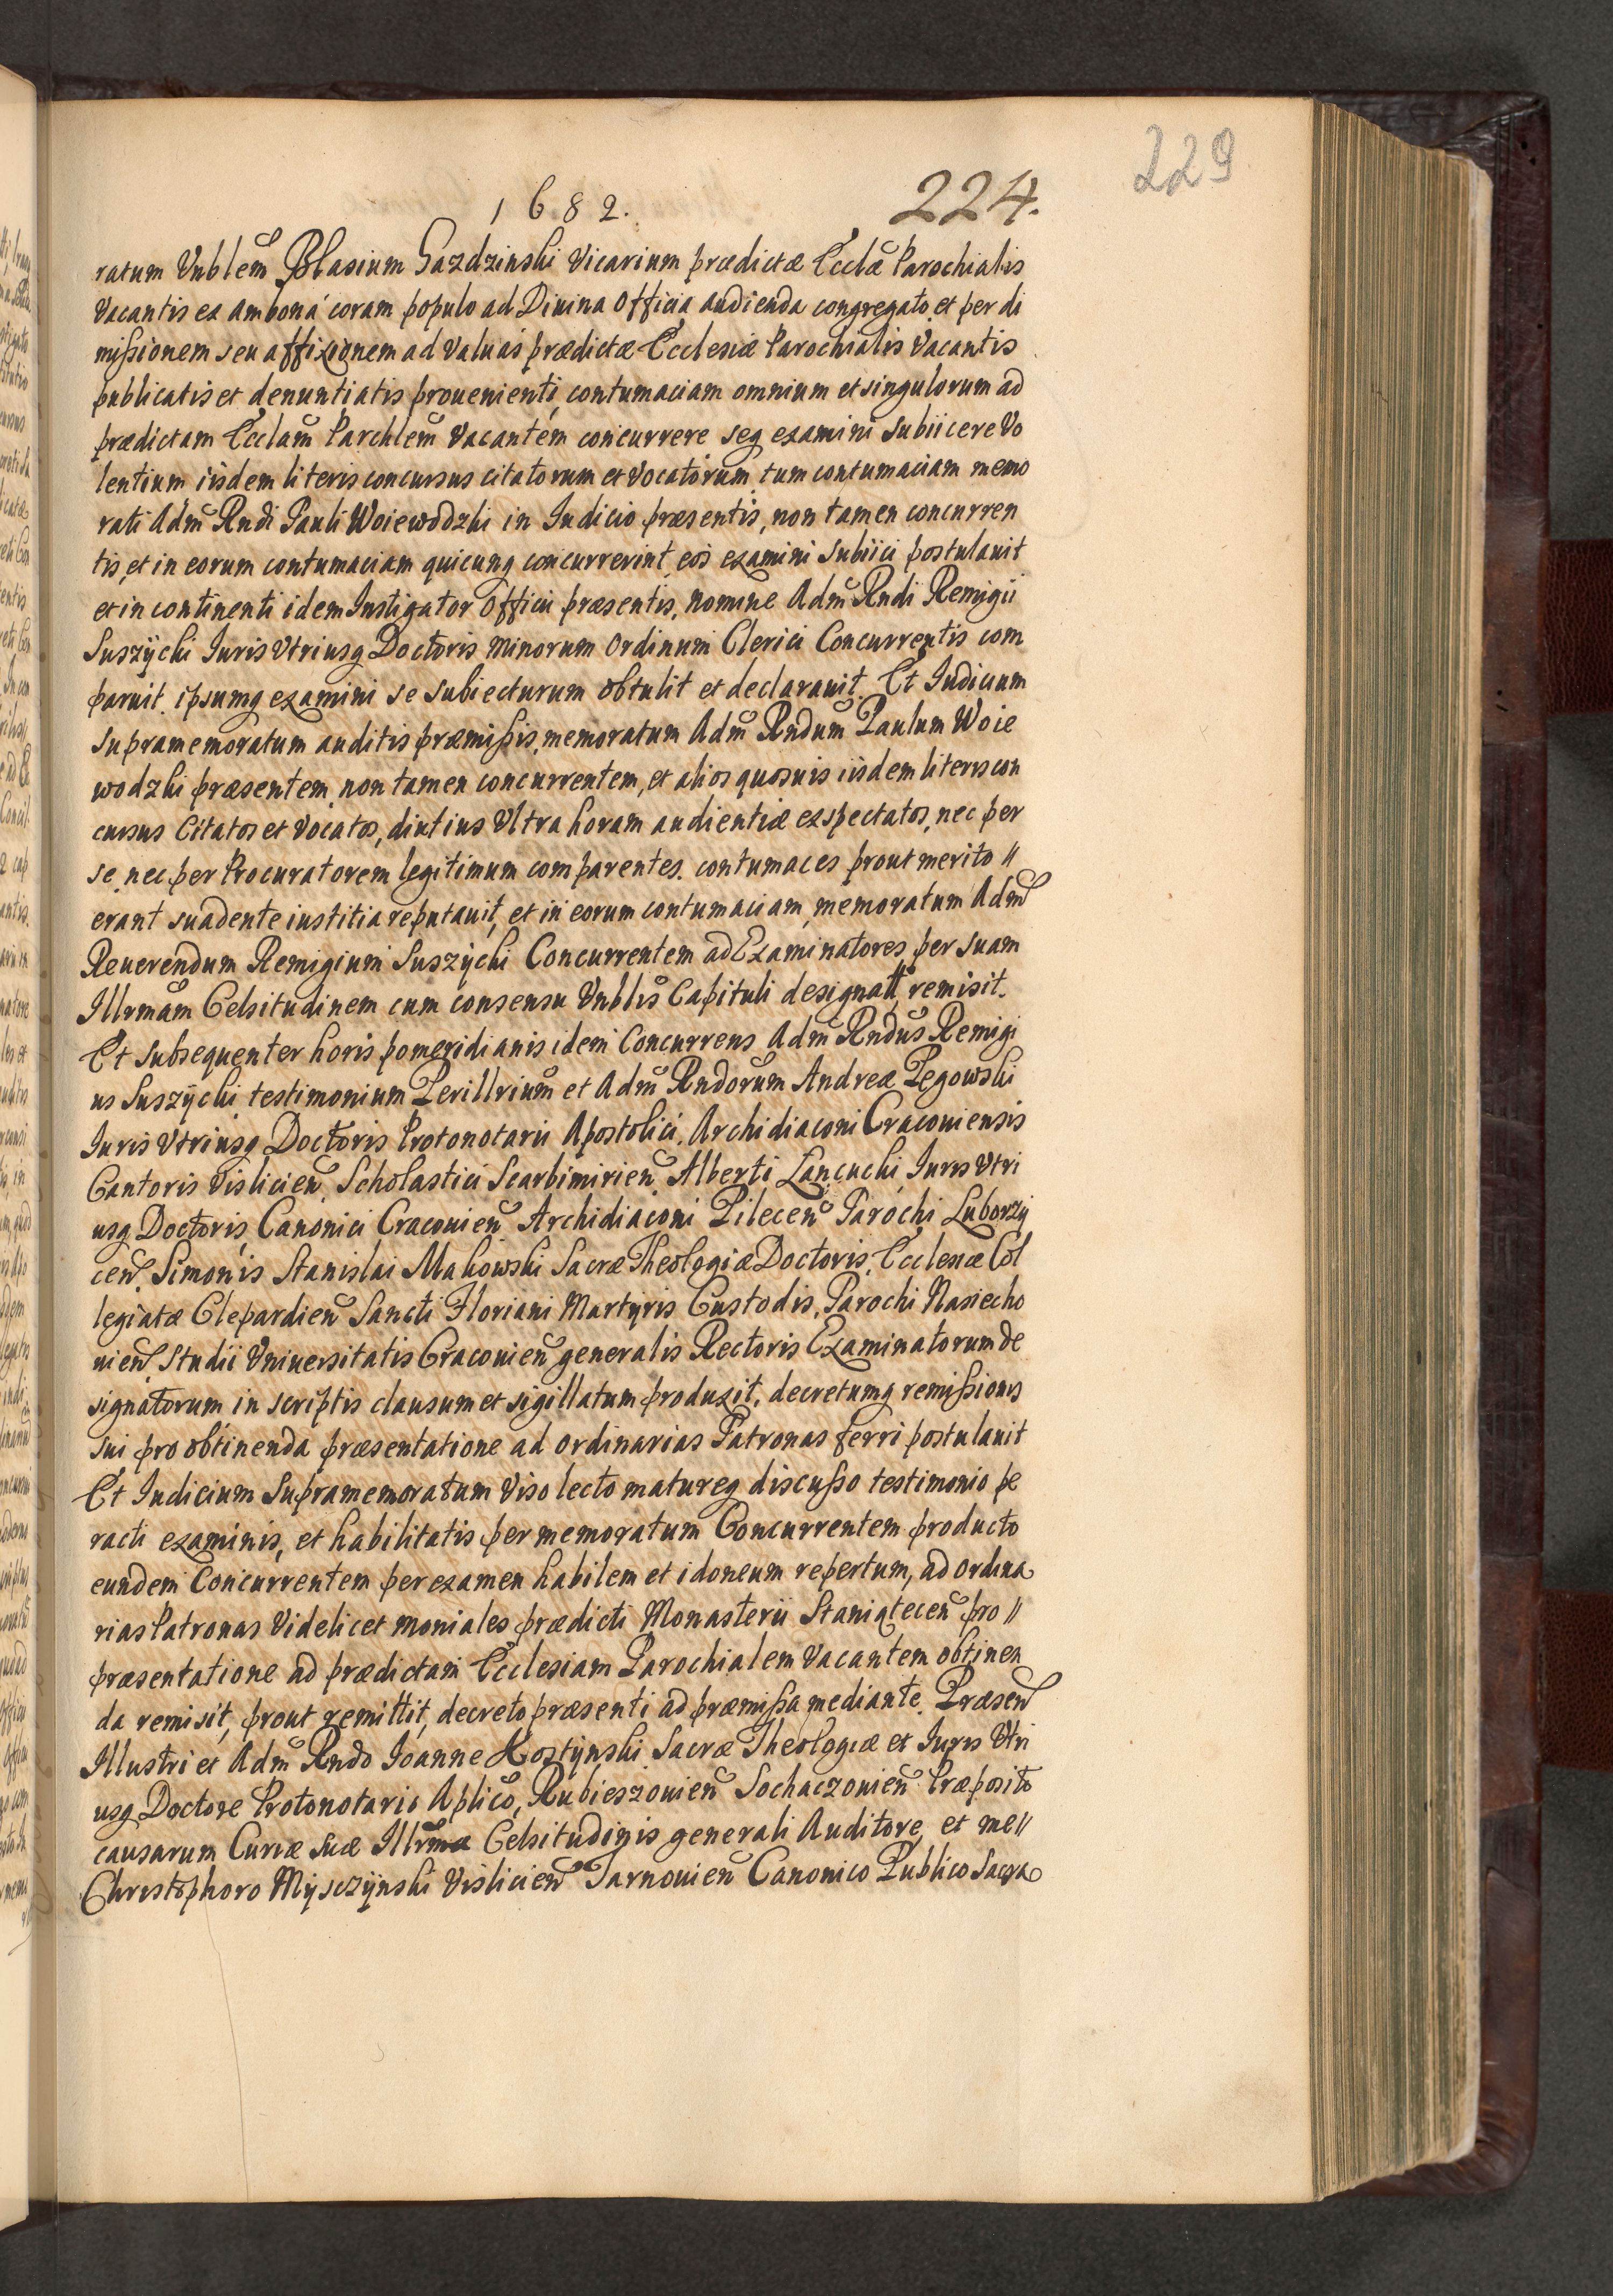 229
1682. 224.
ratum Vnblem̃ Blasium Gazdzinski Vicarium prædictæ Ecclæ̃ Parochialis
Vacantis ex ambona coram populo ad Diuina Officia audienda congregato et per di
missionem seu affixionem ad Valuas prædictæ Ecclesiæ Parochialis Vacantis
publicatis et denuntiatis prouenienti, contumaciam omnium et singulorum ad
prædictam Ecclam̃ Parchlem̃ Vacantem concurrere seq examini subiicere Vo
lentium iisdem literis concursus citatorum et Vocatorum tum contumaciam memo
rati Adm̃ Rndi Pauli Woiewodzki in Iudicio præsentis, non tamen concurren
tis, et in eorum contumaciam quicunq concurrerint, eos examini subiici postulauit
et in continenti idem Instigator Officii præsentis, nomine Adm̃ Rndi Remigii
Suszÿcki Iuris Vtriusq Doctoris Minorum Ordinum Clerici Concurrentis com
paruit ipsumq examini se subiecturum obtulit et declarauit. Et Iudicium
supramemoratum auditis præmissis, memoratum Adm̃ Rndum̃ Paulum Woie
wodzki præsentem, non tamen concurrentem, et alios quosuis iisdem literis con
cursus Citatos et Vocatos, diutius Vltra horam audientiæ exspectatos, nec per
se, nec per Procuratorem legitimum comparentes. contumaces prout merito //
erant suadente iustitia reputauit, et in eorum contumaciam, memoratum Adm̃
Reuerendum Remigium Suszÿcki Concurrentem ad Examinatores per suam
Illrmam̃ Celsitudinem cum consensu Vnblis̃ Capituli designatt, remisit.
Et subsequenter horis pomeridianis idem Concurrens Adm̃ Rndus̃ Remigi
us Suszÿcki testimonium Perillrium̃ et Adm̃ Rndorum̃ Andreæ Pegowski
Iuris Vtriusq Doctoris Protonotarii Apostolici, Archidiaconi Cracouiensis
Cantoris Vislicieñ, Scholastici Scarbimirieñ, Alberti Lancucki Iuris Vtri
usq Doctoris, Canonici Cracouieñ Archidiaconi Pileceñ Parochi Luborzÿ
ceñ, Simonis Stanislai Makowski Sacræ Theologiæ Doctoris, Ecclesiæ Col
legiatæ Clepardieñ Sancti Floriani Martyris Custodis, Parochi Nasiecho
uieñ, Studii Vniuersitatis Cracouieñ generalis Rectoris Examinatorum de
signatorum in scriptis clausum et sigillatum produxit, decretumq remissionis
sui pro obtinenda præsentatione ad Ordinarias Patronas ferri postulauit
Et Iudicium Supramemoratum Viso lecto matureq discusso testimonio pe
racti examinis, et habilitatis per memoratum Concurrentem producto
eundem Concurrentem per examen habilem et idoneum repertum, ad Ordina
rias Patronas Videlicet Moniales prædicti Monasterii Staniateceñ pro //
præsentatione ad prædictam Ecclesiam Parochialem Vacantem obtinen
da remisit, prout remittit, decreto præsenti ad præmissa mediante. Præseñ
Illustri et Adm̃ Rndo Ioanne Hostÿnski Sacræ Theologiæ et Iuris Vtri
usq Doctore Protonotario Aplico, Rubieszouieñ Sochaczouieñ Præposito
causarum Curiæ suæ Illrmæ Celsitudinis generali Auditore, et me //
Christophoro Mÿsczÿnski Vislicieñ Tarnouieñ Canonico Publico Sacra